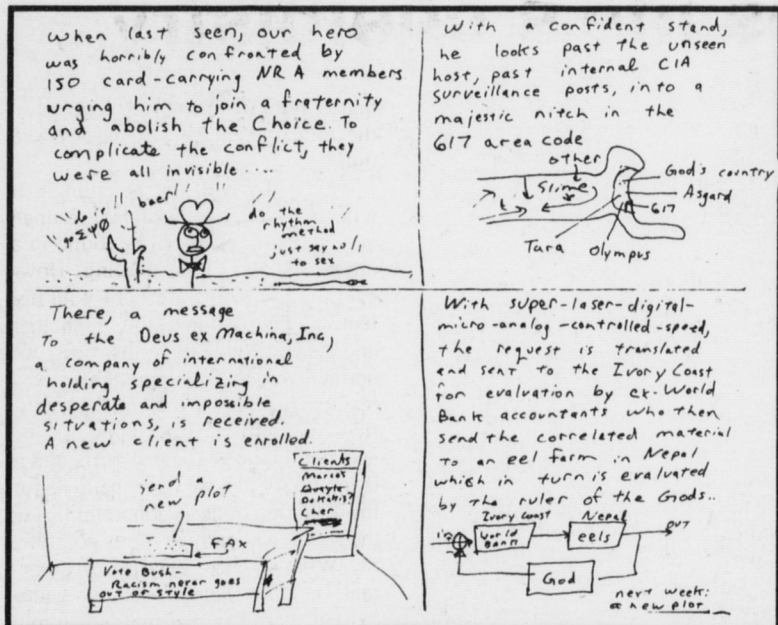 When last seen, our hero
was horribly confronted by
150 card-carrying NRA members
urging him to join a fraternity
and abolish the Choice. To
complicate the conflict, they
were all invisible....
do it!
go ΣΨΦ
beer!
do the
rhythm
method
just say no
to sex
With a confident stand,
he looks past the unseen
host, past internal CIA
surveillance posts, into a
majestic nitch in the
617 area code
other
Slime
God's country
Asgard
617
Tara
Olympus
There, a message
To the Deus ex Machina, Inc,
a company of international
holding specializing in
desperate and impossible
situations, is received.
A new client is enrolled.
send a
new plot
FAX
Clients
Marcos
Quayle
Dukakis?
Cher
Vote Bush-
Racism never goes
out of style
With super-laser-digital-
micro-analog-controlled-speed,
the request is translated
and sent to the Ivory Coast
for evaluation by ex-World
Bank accountants who then
send the correlated material
to an eel farm in Nepal
which in turn is evaluated
by the ruler of the Gods..
Ivory Coast
Nepal
in
World
Bank
eels
out
God
next week:
a new plot